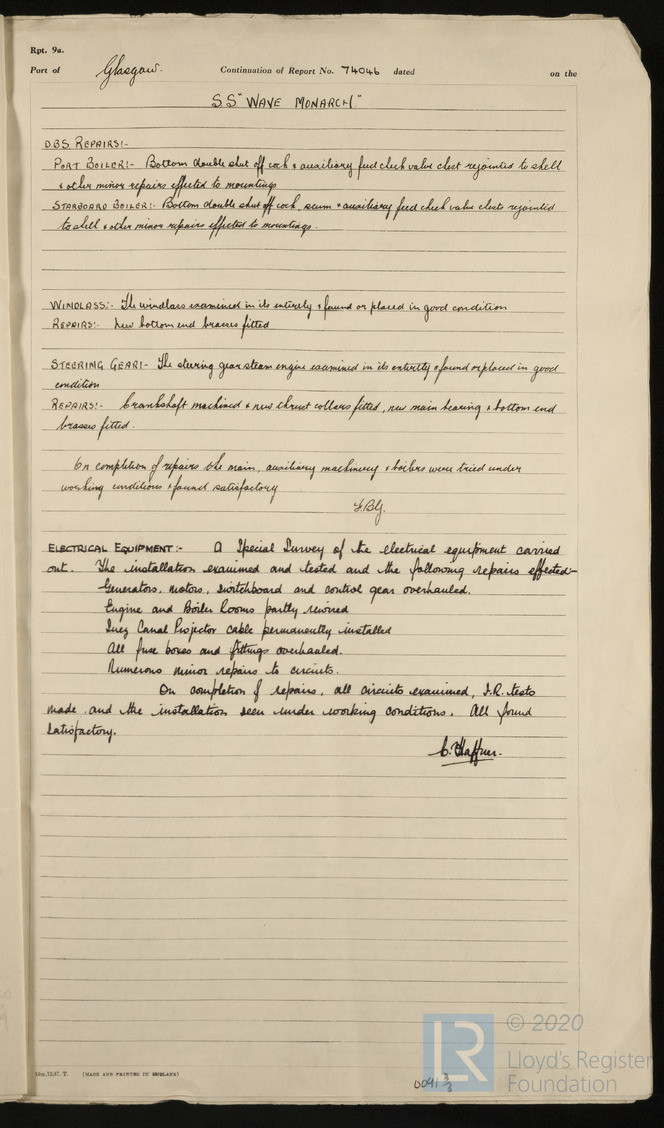 Rpt. 9a.
Port of Glasgow. Continuation of Report No. 74046 dated on the
S.S "WAVE MONARCH"
D.B.S. REPAIRS:-
PORT BOILER:- Bottom double shut off cock & auxiliary feed check valve chest rejointed to shell
& other minor repairs effected to mountings
STARBOARD BOILER:- Bottom double shut off cock, scum & auxiliary feed check valve chests rejointed
to shell & other minor repairs effected to mountings.
WINDLASS:- The windlass examined in its entirety & found or placed in good condition
REPAIRS:- New bottom end brasses fitted
STEERING GEAR:- The steering gear steam engine examined in its entirety & found or placed in good
condition
REPAIRS:- Crankshaft machined & new thrust collars fitted, new main bearing & bottom end
brasses fitted.
On completion of repairs the main, auxiliary machinery & boilers were tried under
working conditions & found satisfactory
ELECTRICAL EQUIPMENT:- A Special Survey of the electrical equipment carried
out. The installation examined and tested and the following repairs effected-
Generators, motors, switchboard and control gear overhauled.
Engine and Boiler Rooms partly rewired
Suez Canal Projector cable permanently installed
All fuse boxes and fittings overhauled.
Numerous minor repairs to circuits.
On completion of repairs, all circuits examined, I.R. tests
made and the installation seen under working conditions. All found
satisfactory.
C. Haffner.
T. (MADE AND PRINTED IN ENGLAND)
0091 3/3
© 2020
LR
Lloyd's Register
Foundation